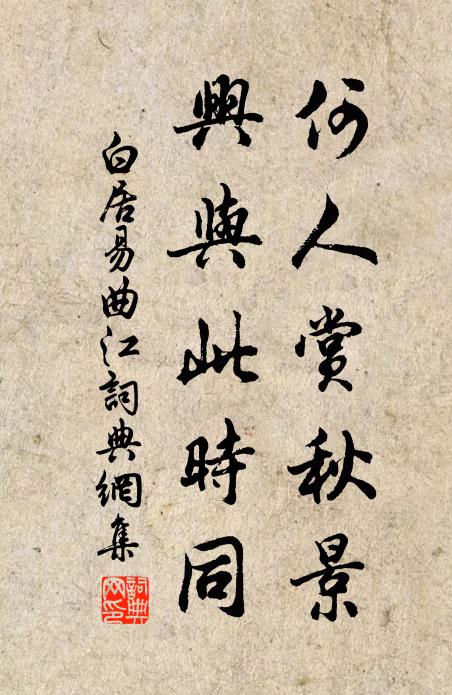 何人賞秋景
興與此時同
白居易曲江詞典網集
詞典網印